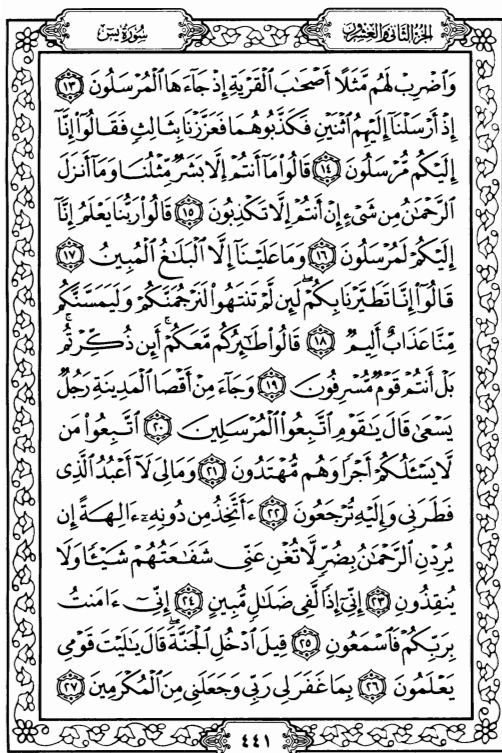 سُورَةُ يسٓ
الجُزْءُ الثَّانِي وَالْعِشْرُونَ
وَٱضْرِبْ لَهُم مَّثَلًا أَصْحَٰبَ ٱلْقَرْيَةِ إِذْ جَآءَهَا ٱلْمُرْسَلُونَ ١٣
إِذْ أَرْسَلْنَآ إِلَيْهِمُ ٱثْنَيْنِ فَكَذَّبُوهُمَا فَعَزَّزْنَا بِثَالِثٍ فَقَالُوٓا۟ إِنَّآ
إِلَيْكُم مُّرْسَلُونَ ١٤ قَالُوا۟ مَآ أَنتُمْ إِلَّا بَشَرٌ مِّثْلُنَا وَمَآ أَنزَلَ
ٱلرَّحْمَٰنُ مِن شَىْءٍ إِنْ أَنتُمْ إِلَّا تَكْذِبُونَ ١٥ قَالُوا۟ رَبُّنَا يَعْلَمُ إِنَّآ
إِلَيْكُمْ لَمُرْسَلُونَ ١٦ وَمَا عَلَيْنَآ إِلَّا ٱلْبَلَٰغُ ٱلْمُبِينُ ١٧
قَالُوٓا۟ إِنَّا تَطَيَّرْنَا بِكُمْ ۖ لَئِن لَّمْ تَنتَهُوا۟ لَنَرْجُمَنَّكُمْ وَلَيَمَسَّنَّكُم
مِّنَّا عَذَابٌ أَلِيمٌ ١٨ قَالُوا۟ طَٰٓئِرُكُم مَّعَكُمْ ۚ أَئِن ذُكِّرْتُم ۚ
بَلْ أَنتُمْ قَوْمٌ مُّسْرِفُونَ ١٩ وَجَآءَ مِنْ أَقْصَا ٱلْمَدِينَةِ رَجُلٌ
يَسْعَىٰ قَالَ يَٰقَوْمِ ٱتَّبِعُوا۟ ٱلْمُرْسَلِينَ ٢٠ ٱتَّبِعُوا۟ مَن
لَّا يَسْـَٔلُكُمْ أَجْرًا وَهُم مُّهْتَدُونَ ٢١ وَمَا لِىَ لَآ أَعْبُدُ ٱلَّذِى
فَطَرَنِى وَإِلَيْهِ تُرْجَعُونَ ٢٢ ءَأَتَّخِذُ مِن دُونِهِۦٓ ءَالِهَةً إِن
يُرِدْنِ ٱلرَّحْمَٰنُ بِضُرٍّ لَّا تُغْنِ عَنِّى شَفَٰعَتُهُمْ شَيْـًٔا وَلَا
يُنقِذُونِ ٢٣ إِنِّىٓ إِذًا لَّفِى ضَلَٰلٍ مُّبِينٍ ٢٤ إِنِّىٓ ءَامَنتُ
بِرَبِّكُمْ فَٱسْمَعُونِ ٢٥ قِيلَ ٱدْخُلِ ٱلْجَنَّةَ ۖ قَالَ يَٰلَيْتَ قَوْمِى
يَعْلَمُونَ ٢٦ بِمَا غَفَرَ لِى رَبِّى وَجَعَلَنِى مِنَ ٱلْمُكْرَمِينَ ٢٧
٤٤١